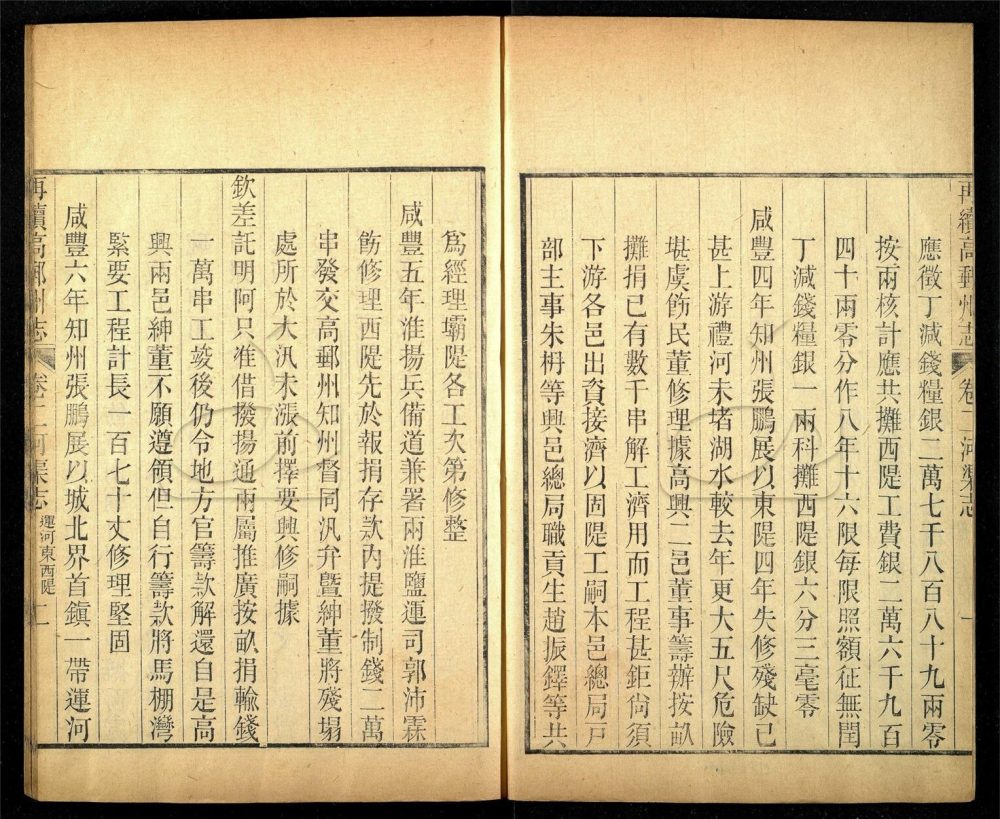 再續高郵州志 卷二 河渠志 一
應徵丁減錢糧銀二萬七千八百八十九兩零
按兩核計應共攤西隄工費銀二萬六千九百
四十兩零分作八年十六限每限照額征無閏
丁減錢糧銀一兩科攤西隄銀六分三毫零
咸豐四年知州張鵬展以東隄四年失修殘缺已
甚上游禮河未堵湖水較去年更大五尺危險
堪虞飭民董修理據高興二邑董事籌辦按畝
攤捐已有數千串解工濟用而工程甚鉅尙須
下游各邑出資接濟以固隄工嗣本邑總局戸
部主事朱枬等興邑總局職貢生趙振鐸等共
爲經理壩隄各工次第修整
咸豐五年淮揚兵備道兼署兩淮鹽運司郭沛霖
飭修理西隄先於報捐存款內提撥制錢二萬
串發交高郵州知州督同汛弁曁紳董將殘塌
處所於大汛未漲前擇要興修嗣據
欽差託明阿只准借撥揚通兩屬推廣按畝捐輸錢
一萬串工竣後仍令地方官籌款解還自是高
興兩邑紳董不願遵領但自行籌款將馬棚灣
緊要工程計長一百七十丈修理堅固
咸豐六年知州張鵬展以城北界首鎭一帶運河
再續高郵州志 卷二 河渠志 運河東西隄 二